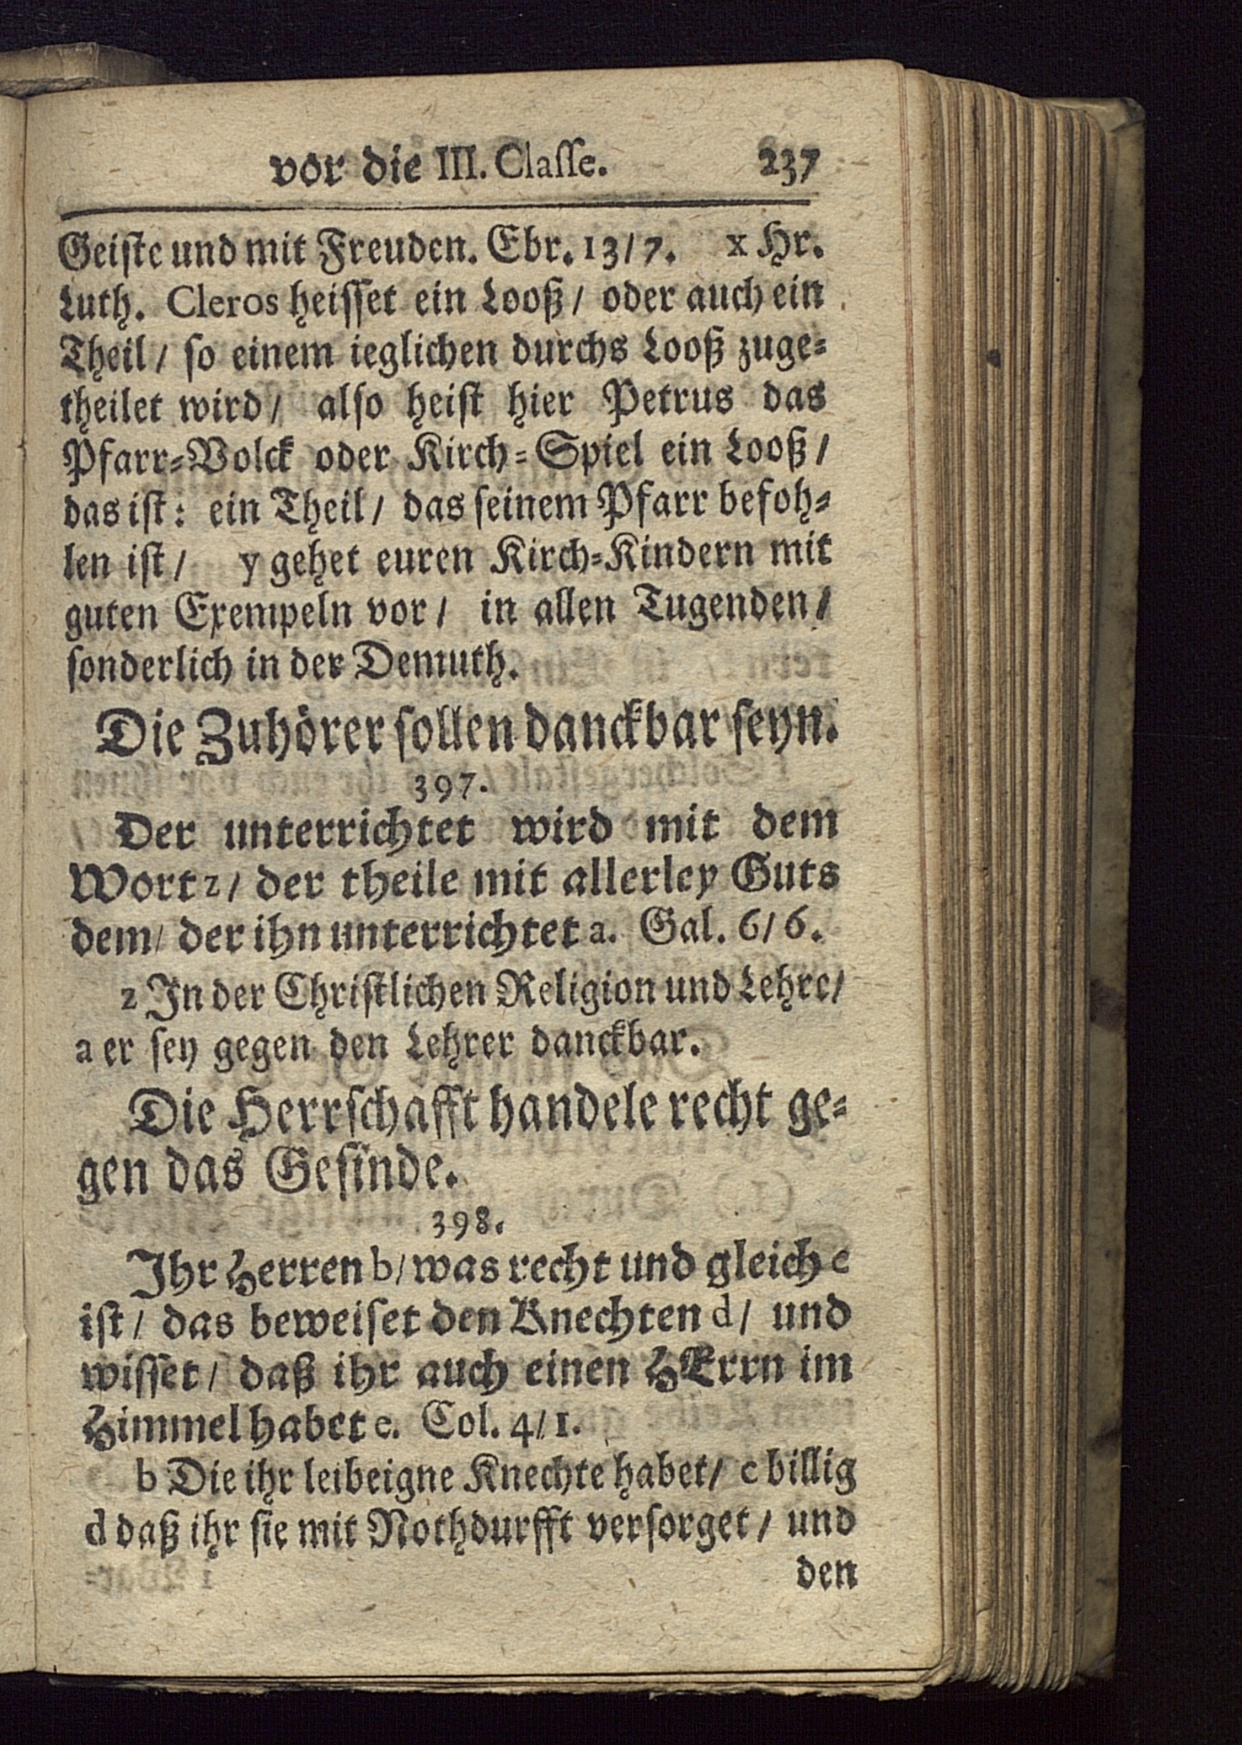 vor die III. Classe. 237
Geiste und mit Freuden. Ebr. 13/7. x Hr.
Luth. Cleros heisset ein Looß / oder auch ein
Theil / so einem ieglichen durchs Looß zuge-
theilet wird / also heist hier Petrus das
Pfarr-Volck oder Kirch-Spiel ein Looß /
das ist: ein Theil / das seinem Pfarr befoh-
len ist / y gehet euren Kirch-Kindern mit
guten Exempeln vor / in allen Tugenden /
sonderlich in der Demuth.
Die Zuhörer sollen danckbar seyn.
397.
Der unterrichtet wird mit dem
Wort z / der theile mit allerley Guts
dem / der ihn unterrichtet a. Gal. 6/6.
z In der Christlichen Religion und Lehre /
a er sey gegen den Lehrer danckbar.
Die Herrschafft handele recht ge-
gen das Gesinde.
398.
Ihr Herren b / was recht und gleich c
ist / das beweiset den Knechten d / und
wisset / daß ihr auch einen HErrn im
Himmel habet e. Col. 4/1.
b Die ihr leibeigne Knechte habet / c billig
d daß ihr sie mit Nothdurfft versorget / und
den